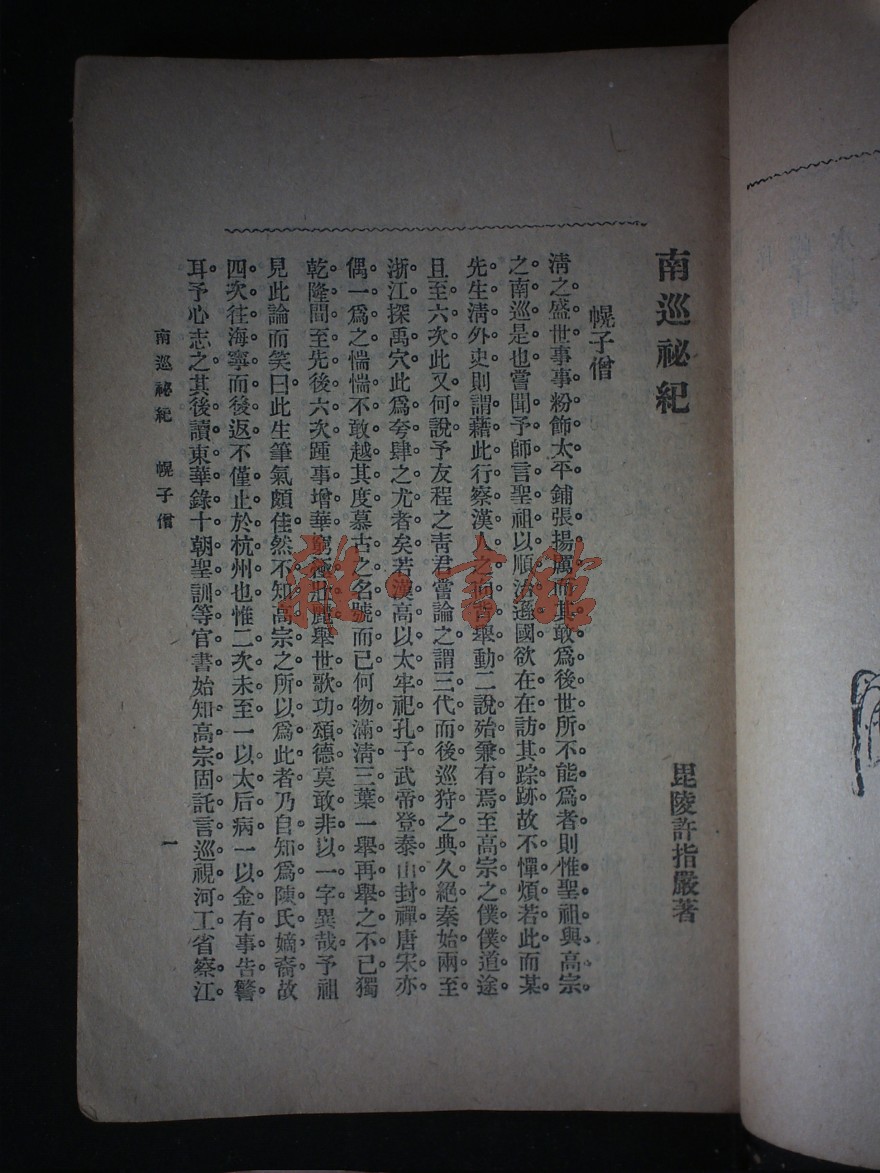 南巡祕紀
毘陵許指嚴著
幌子僧
淸之盛世事事粉飾太平鋪張揚厲而其敢爲後世所不能爲者則惟聖祖與高宗
之南巡是也嘗聞予師言聖祖以順治遜國欲在在訪其踪跡故不憚煩若此而某
先生淸外史則謂藉此行察漢人之向背舉動二說殆兼有焉至高宗之僕僕道途
且至六次此又何說予友程之靑君嘗論之謂三代而後巡狩之典久絕秦始兩至
浙江探禹穴此爲夸肆之尤者矣若漢高以太牢祀孔子武帝登泰山封禪唐宋亦
偶一爲之惴惴不敢越其度慕古之名號而已何物滿淸三葉一舉再舉之不已獨
乾隆間至先後六次踵事增華窮極壯麗舉世歌功頌德莫敢非以一字異哉予祖
見此論而笑曰此生筆氣頗佳然不知高宗之所以爲此者乃自知爲陳氏嫡裔故
四次往海寧而後返不僅止於杭州也惟二次未至一以太后病一以金有事告警
耳予心志之其後讀東華錄十朝聖訓等官書始知高宗固託言巡視河工省察江
南巡祕紀 幌子僧
一
雜·書館